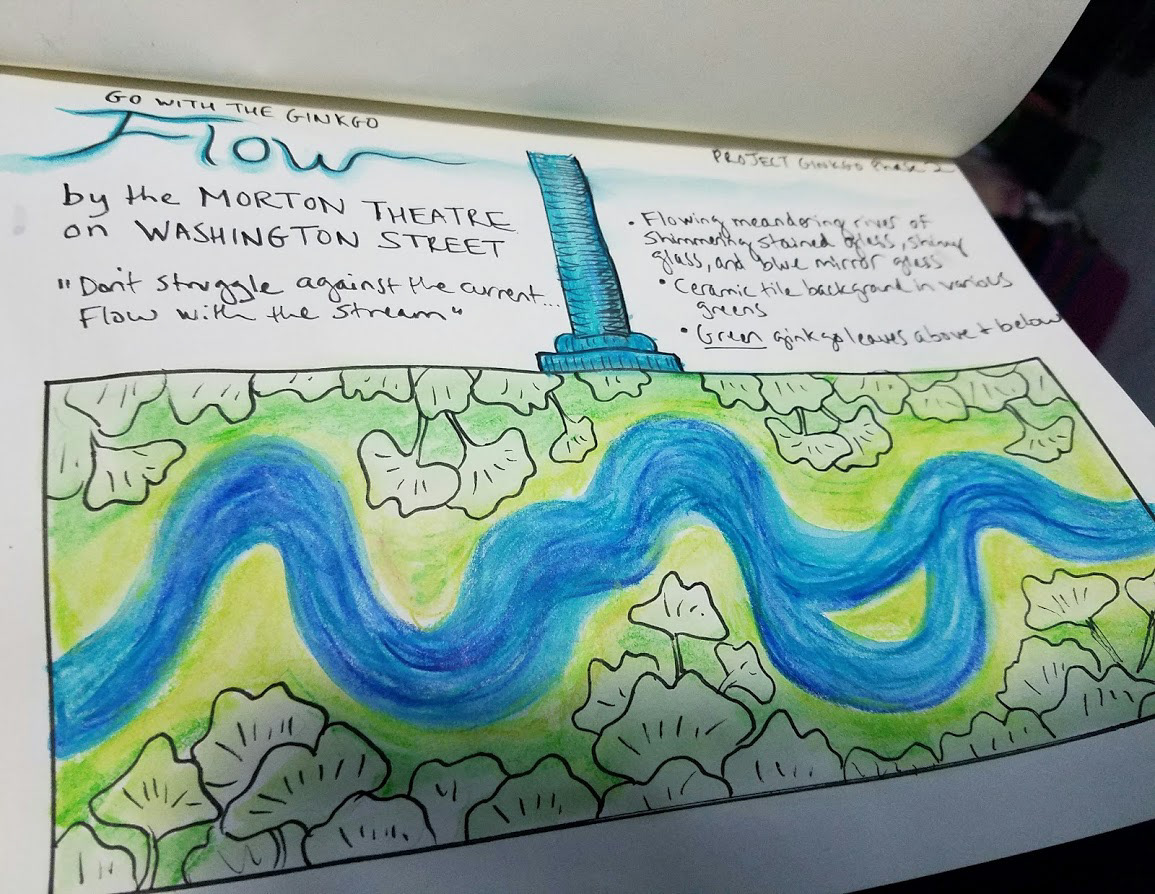 GO WITH THE GINKGO
Flow
by the MORTON THEATRE
on WASHINGTON STREET
"Don't struggle against the current...
Flow with the stream"
PROJECT GINKGO Phase 2
• Flowing meandering river of
shimmering stained glass, shiny
glass, and blue mirror glass
• Ceramic tile background in various
greens
• Green ginkgo leaves above + below